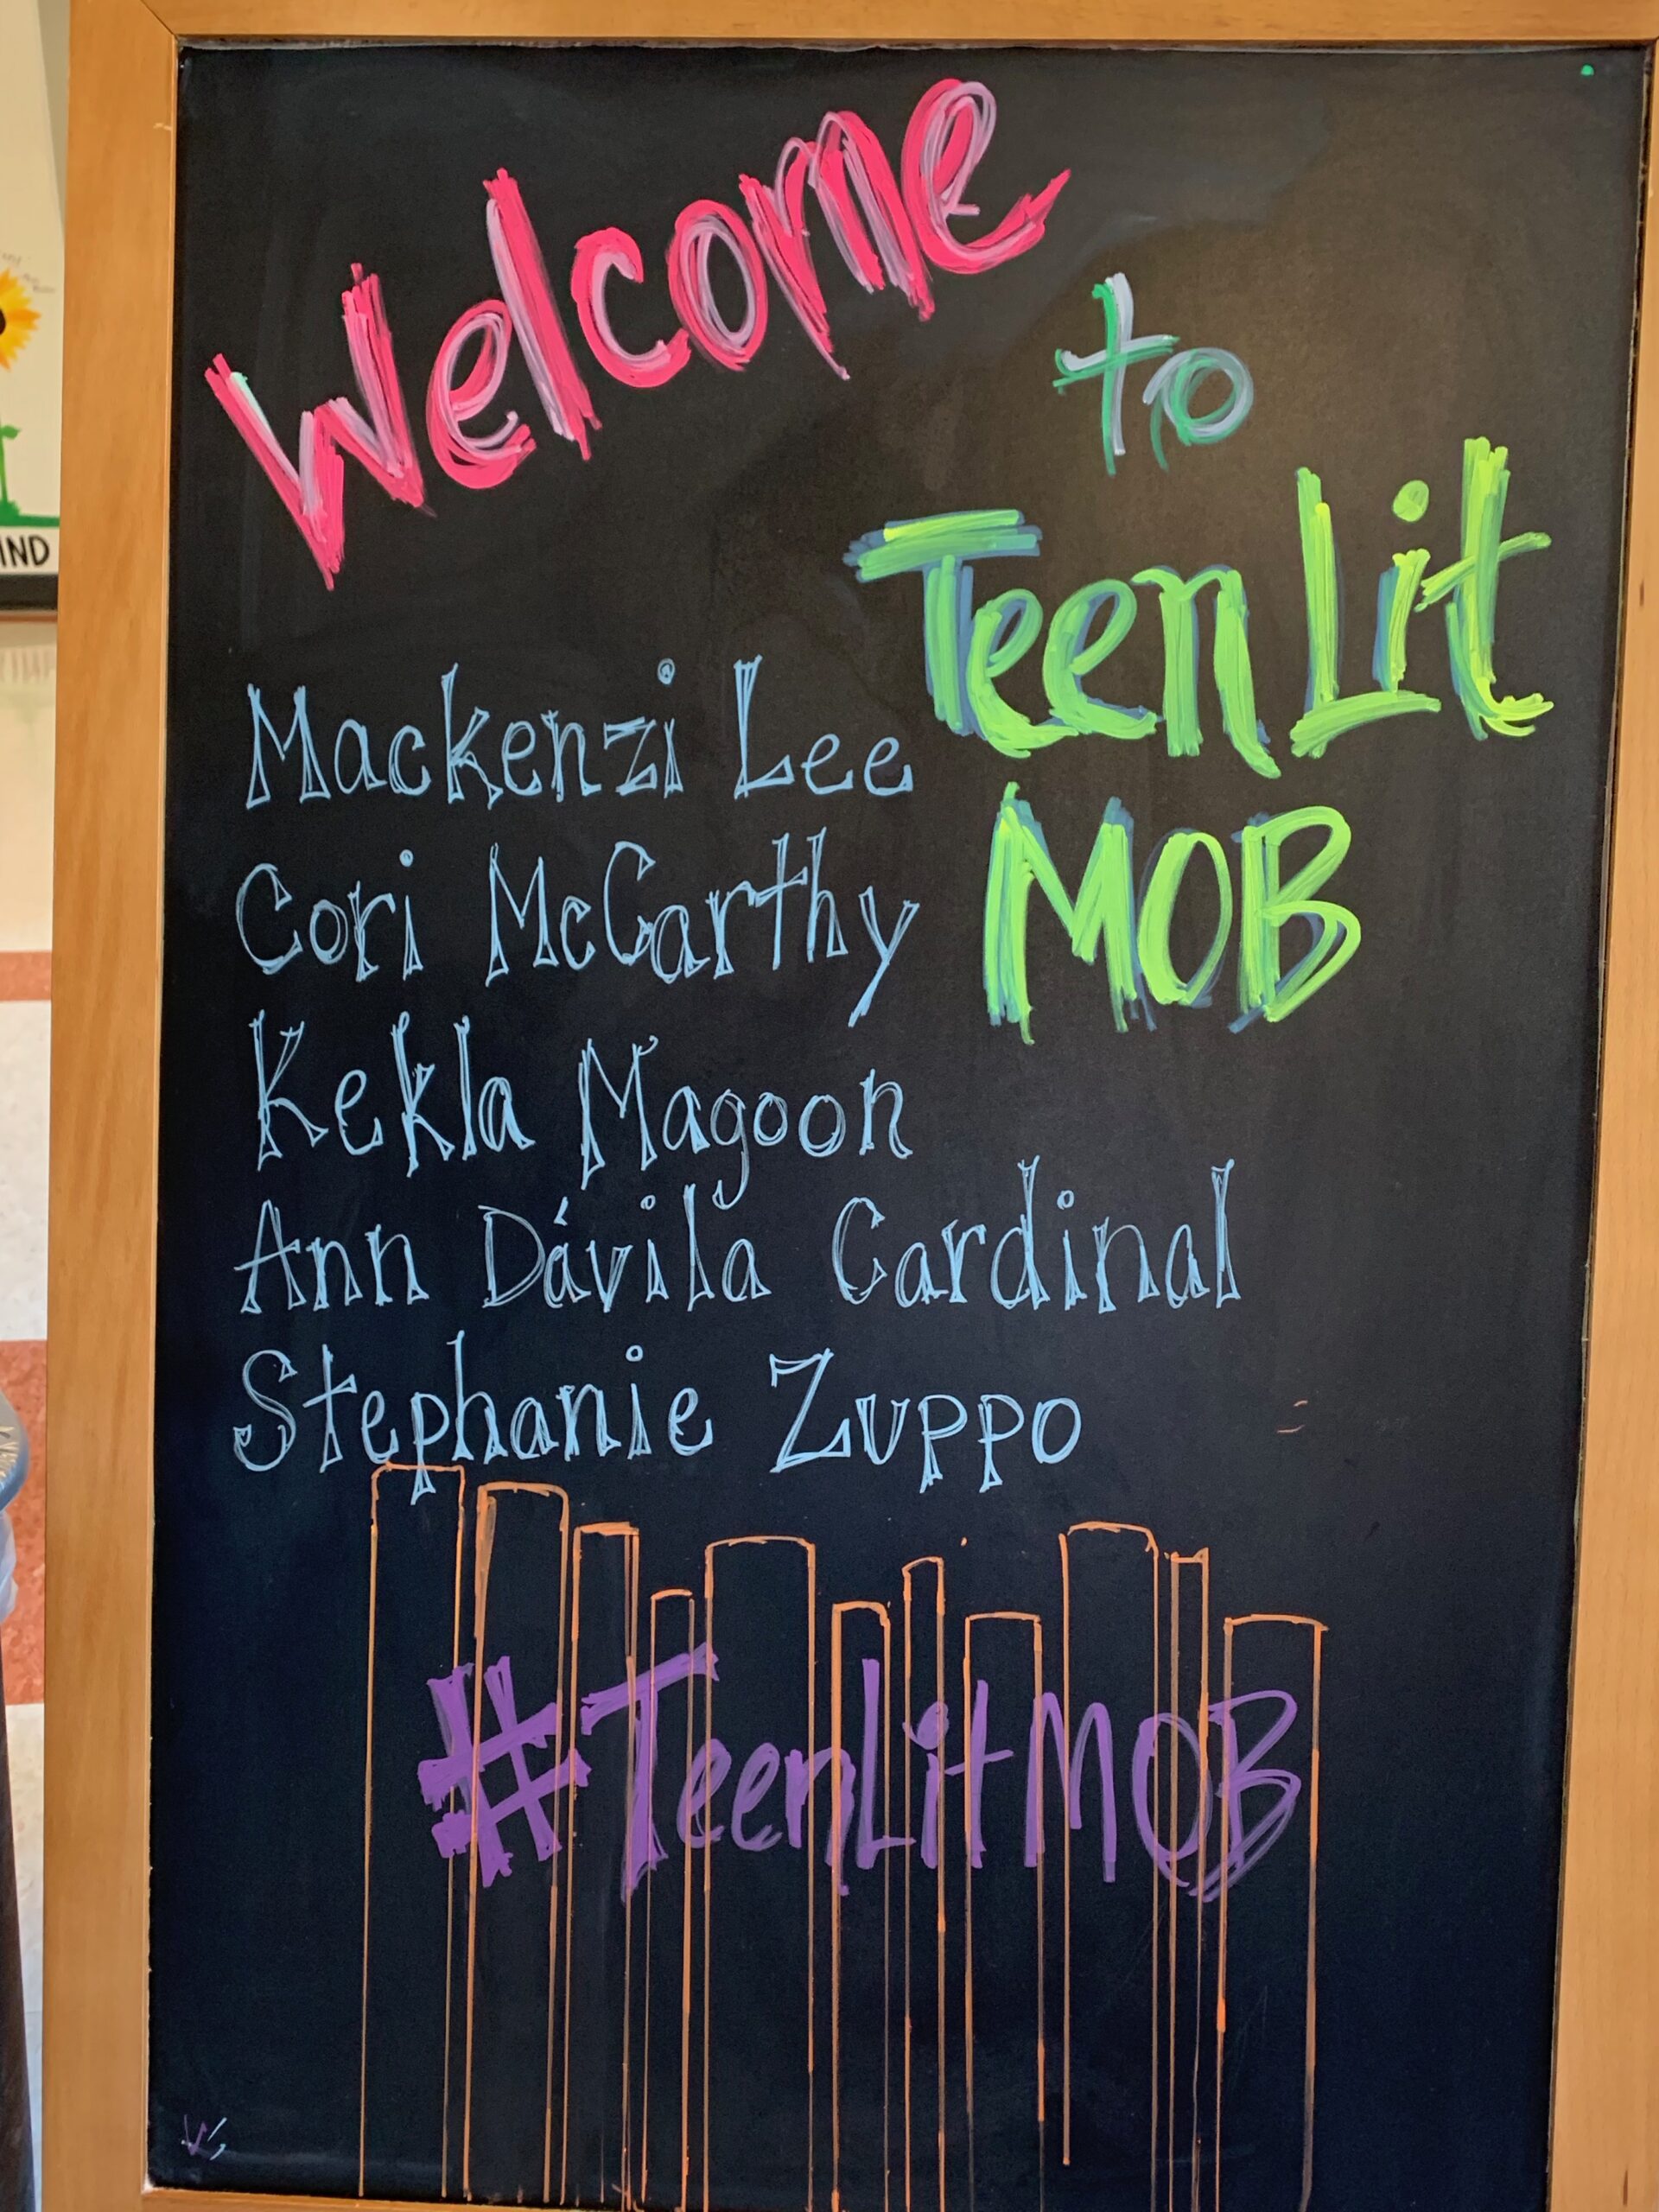 Welcome
to
Teen Lit
MOB
Mackenzi Lee
Cori McCarthy
Kekla Magoon
Ann Dávila Cardinal
Stephanie Zuppo
#TeenLitMOB
IND